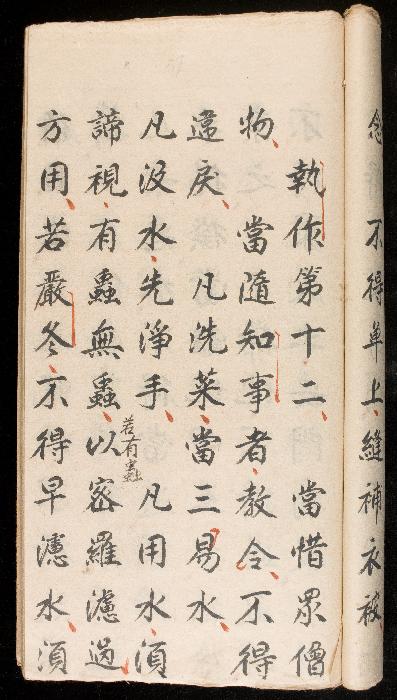 念 不得单上縫補衣被
執作第十二 當惜眾僧
物 當隨知事者教令不得
違戾 凡洗菜當三易水
凡汲水先淨手 凡用水須
諦視有蟲無蟲若有蟲以密羅濾過
方用若嚴冬不得早濾水須